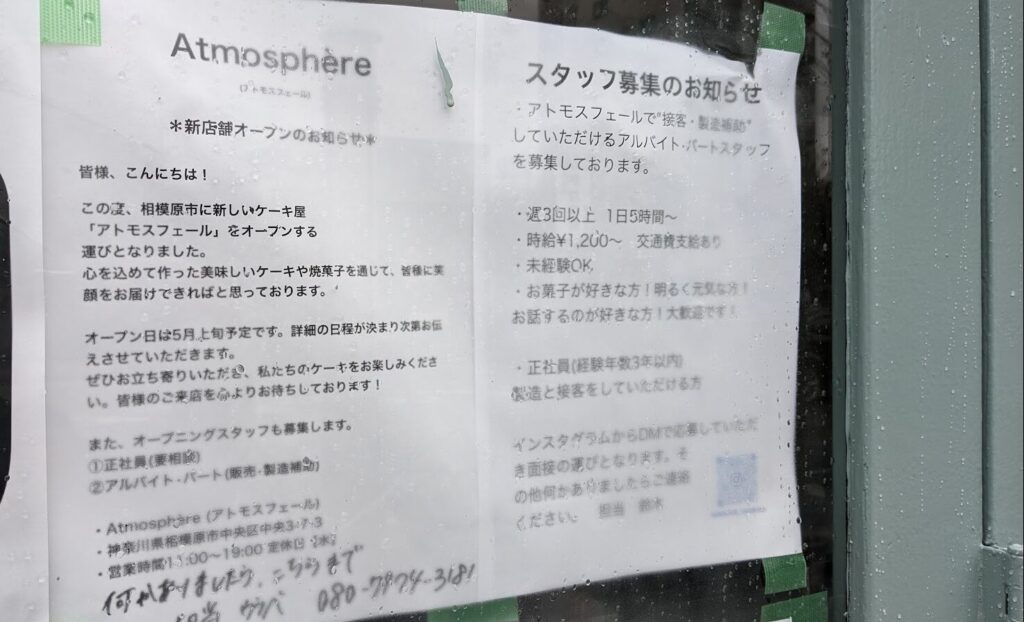 Atmosphère
(アトモスフェール)
＊新店舗オープンのお知らせ＊
皆様、こんにちは！
この度、相模原市に新しいケーキ屋
「アトモスフェール」をオープンする
運びとなりました。
心を込めて作った美味しいケーキや焼菓子を通じて、皆様に笑
顔をお届けできればと思っております。
オープン日は5月上旬予定です。詳細の日程が決まり次第お伝
えさせていただきます。
ぜひお立ち寄りいただき、私たちのケーキをお楽しみくださ
い。皆様のご来店を心よりお待ちしております！
また、オープニングスタッフも募集します。
①正社員(要相談)
②アルバイト・パート(販売・製造補助)
・Atmosphère (アトモスフェール)
・神奈川県相模原市中央区中央3-7-3
・営業時間11:00〜19:00 定休日【水】
何かありましたら、こちらまで
担当 080-7874-3181
スタッフ募集のお知らせ
・アトモスフェールで"接客・製造補助"
していただけるアルバイト・パートスタッフ
を募集しております。
・週3回以上 1日5時間〜
・時給¥1,200〜 交通費支給あり
・未経験OK
・お菓子が好きな方！明るく元気な方！
お話するのが好きな方！大歓迎です！
・正社員(経験年数3年以内)
製造と接客をしていただける方
インスタグラムからDMで応募していただ
き面接の運びとなります。そ
の他何かありましたらご連絡
ください。 担当 鈴木